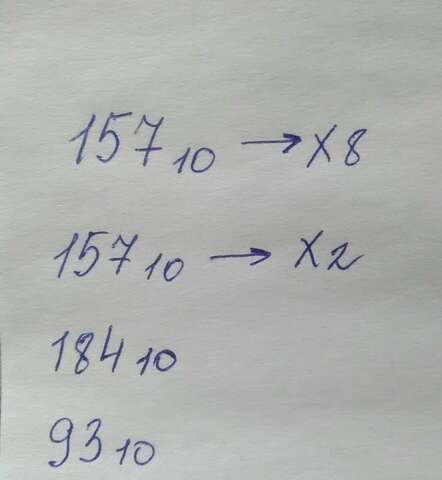 157₁₀ → X8
157₁₀ → X2
184₁₀
93₁₀